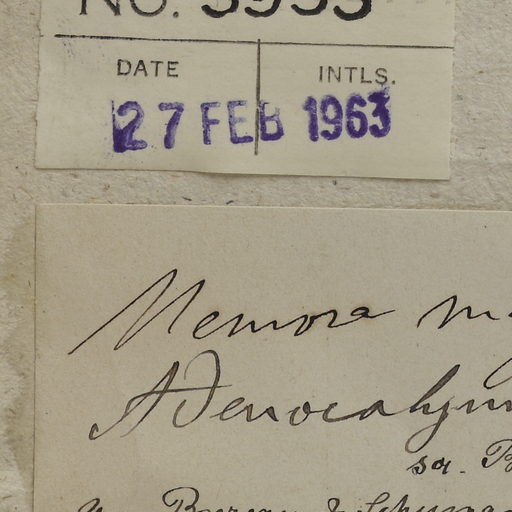 NO. 3953
DATE INTLS.
27 FEB 1963
Memora
Adenocalym
sa. B
Bureau & Schuman